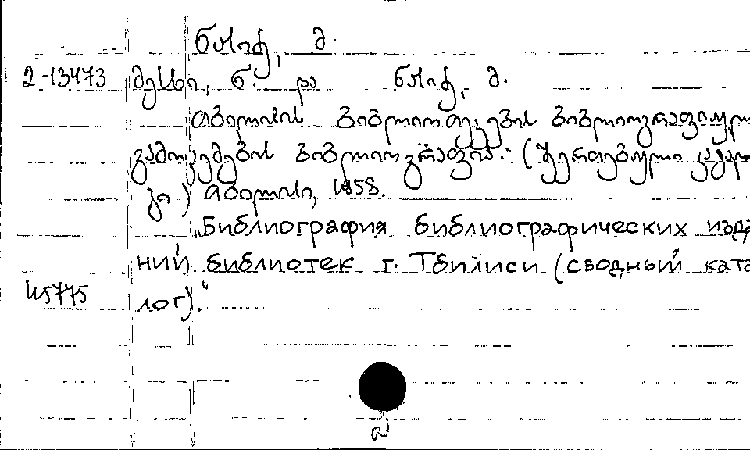 2-13473
თბილისის ბიბლიოთეკების ბიბლიოგრაფიული
გამოცემების ბიბლიოგრაფია. (შეერთებული კატალო
გი) თბილისი, 1958.
"Библиография библиографических изда
ний библиотек г. Тбилиси (сводный ката
45775 лог)."